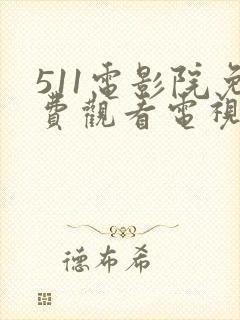 511電影院免
費觀看電視
德布希